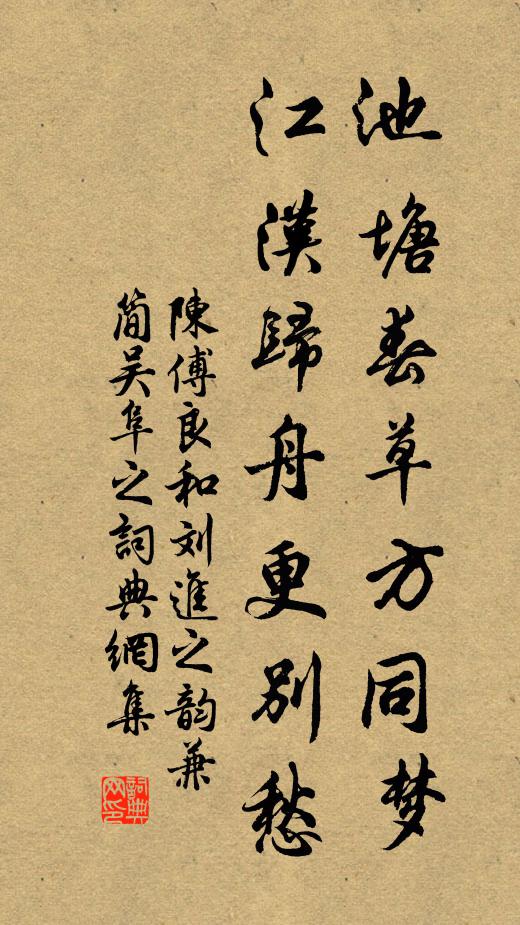 池塘春草方同梦
江漢歸舟更别愁
陳傅良和刘進之韵兼
简吴阜之詞典網集
詞典网印